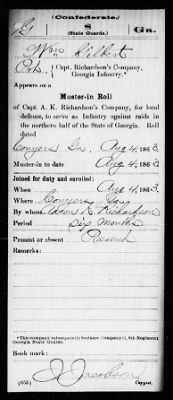 (Confederate.)
8
(State Guards.)
Ga.
Wm
Capt. Richardson's Company,
Georgia Infantry.*
Appears on a
Muster-in Roll
of Capt. A. K. Richardson's Company, for local
defense, to serve as Infantry against raids in
the northern half of the State of Georgia. Roll
dated
Conyers Ga., Aug 4, 1863.
Muster-in to date Aug 4, 1863.
Joined for duty and enrolled:
When Aug 4, 1863.
Where Conyers
By whom Richardson
Period Six months
Present or absent Present
Remarks:
*This company subsequently became Company
Georgia State Guards.
Book mark:
J Jacobson
(655) Copyist.